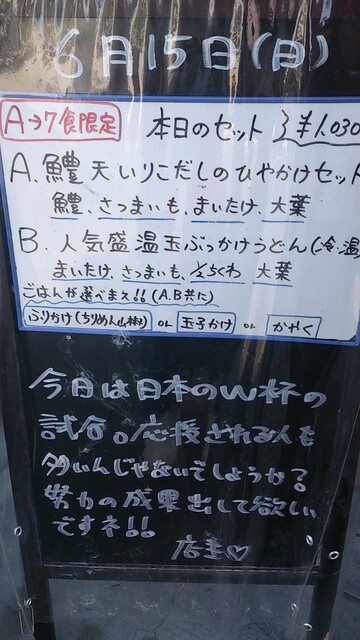 6月15日(日)
A→7食限定 本日のセット ¥1.030
A. 鱧天いりこだしのひやかけセット
鱧、さつまいも、まいたけ、大葉
B. 人気盛温玉ぶっかけうどん(冷・温
まいたけ、さつまいも、½ちくわ 大葉
ごはんが選べまス!!(A.B共に)
ふりかけ(ちりめん山椒) or 玉子かけ or かやく
今日は日本のW杯の
試合。応援される人も
多いんじゃないでしょうか?
努力の成果出して欲しい
ですネ!!
店主♡